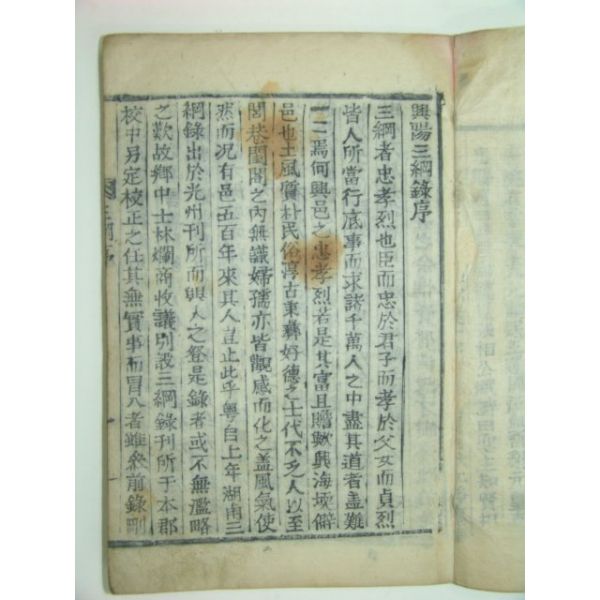 興陽三綱錄序
三綱者忠孝烈也臣而忠於君子而孝於父女而貞烈
皆人所當行底事而求諸千萬人之中盡其道者盖難
一二焉何興邑之忠孝烈若是其富且贍歟興海堧僻
邑也土風質朴民俗淳古秉彛好德之士代不乏人以至
閭巷閨閤之內無識婦孺亦皆觀感而化之盖風氣使
然而况有邑五百年來其人豈止此乎粤自上年湖南三
綱錄出於光州刊所而興人之登是錄者或不無濫略
之歎故鄉中士林爛商收議別設三綱錄刊所于本郡
校中另定校正之任其無實事而冒入者雖參前錄刪
三綱序